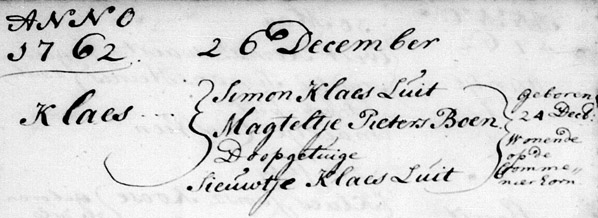 ANNO
1762. 26 December
Klaes
Simon Klaes Luit
Magteltje Pieters Boen
Doopgetuige
Sieuwtje Klaes Luit
geboren
24 Decb:
Wonende
op de